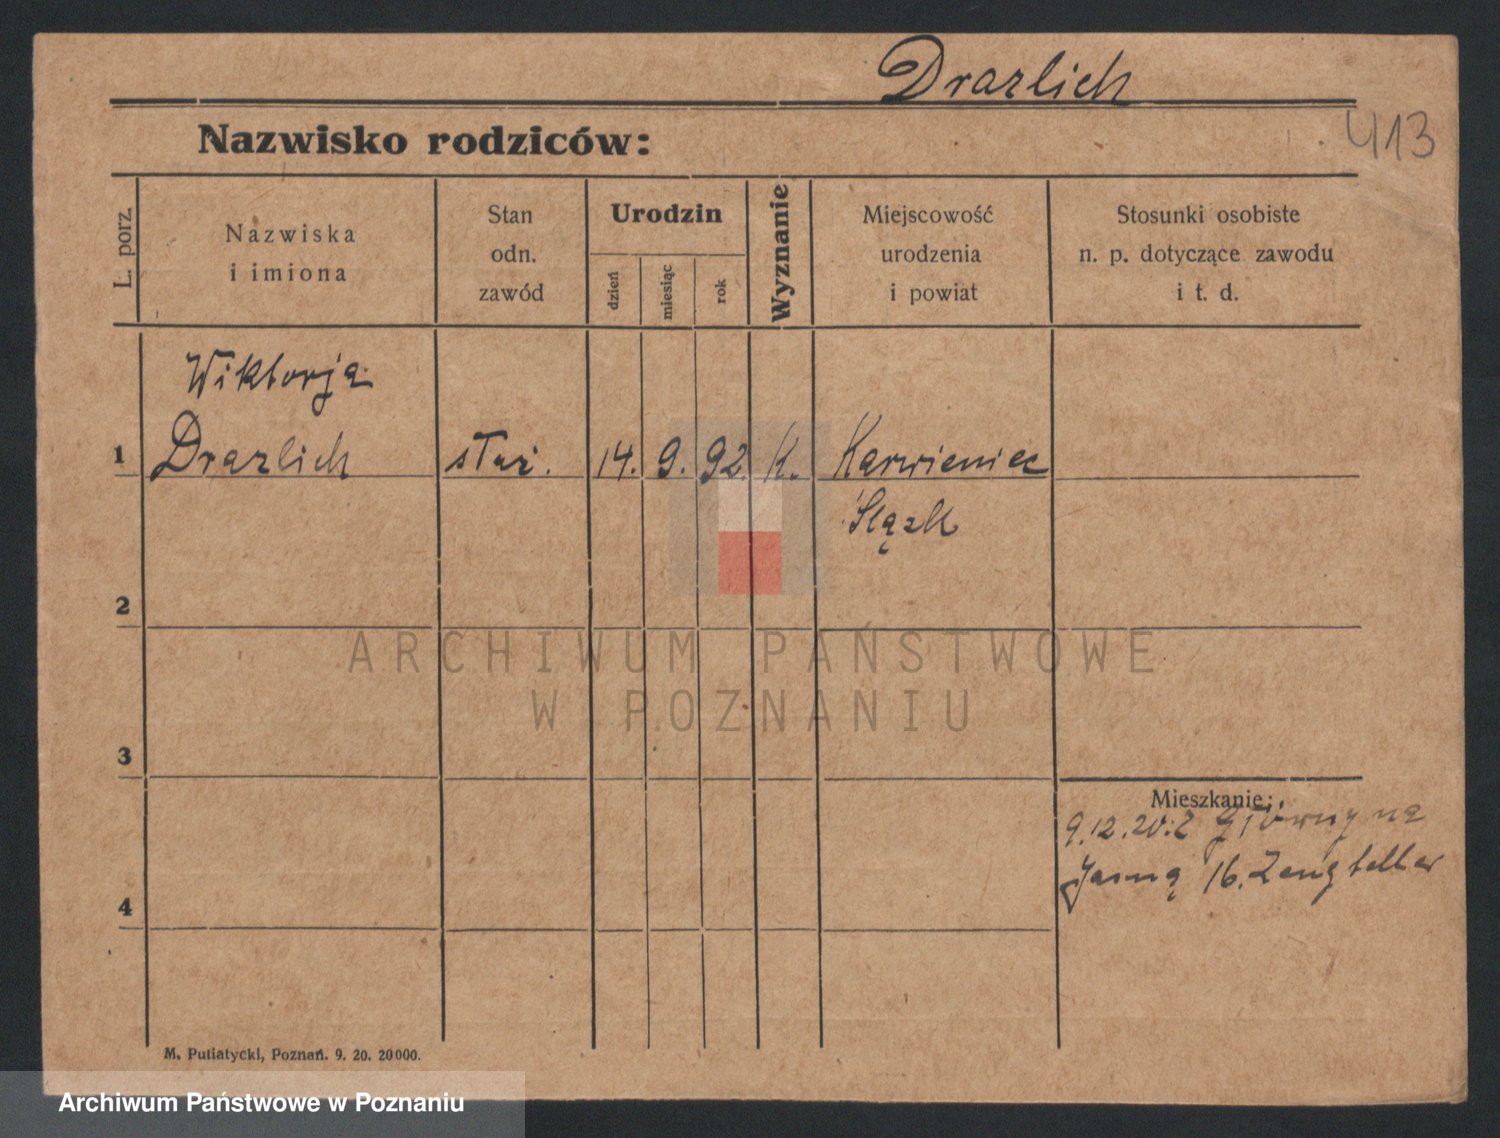 Drazlich
Nazwisko rodziców:
413
L. porz.
Nazwiska
i imiona
Stan
odn.
zawód
Urodzin
dzień
miesiąc
rok
Wyznanie
Miejscowość
urodzenia
i powiat
Stosunki osobiste
n. p. dotyczące zawodu
i t. d.
Wiktorja
1 Drazlich służ. 14. 9. 92. K. Karwieniec
Śląsk
2
ARCHIWUM PAŃSTWOWE
W POZNANIU
3
Mieszkanie:
9.12.20. z na
4 Jasną 16.
M. Putiatycki, Poznań. 9. 20. 20000.
Archiwum Państwowe w Poznaniu